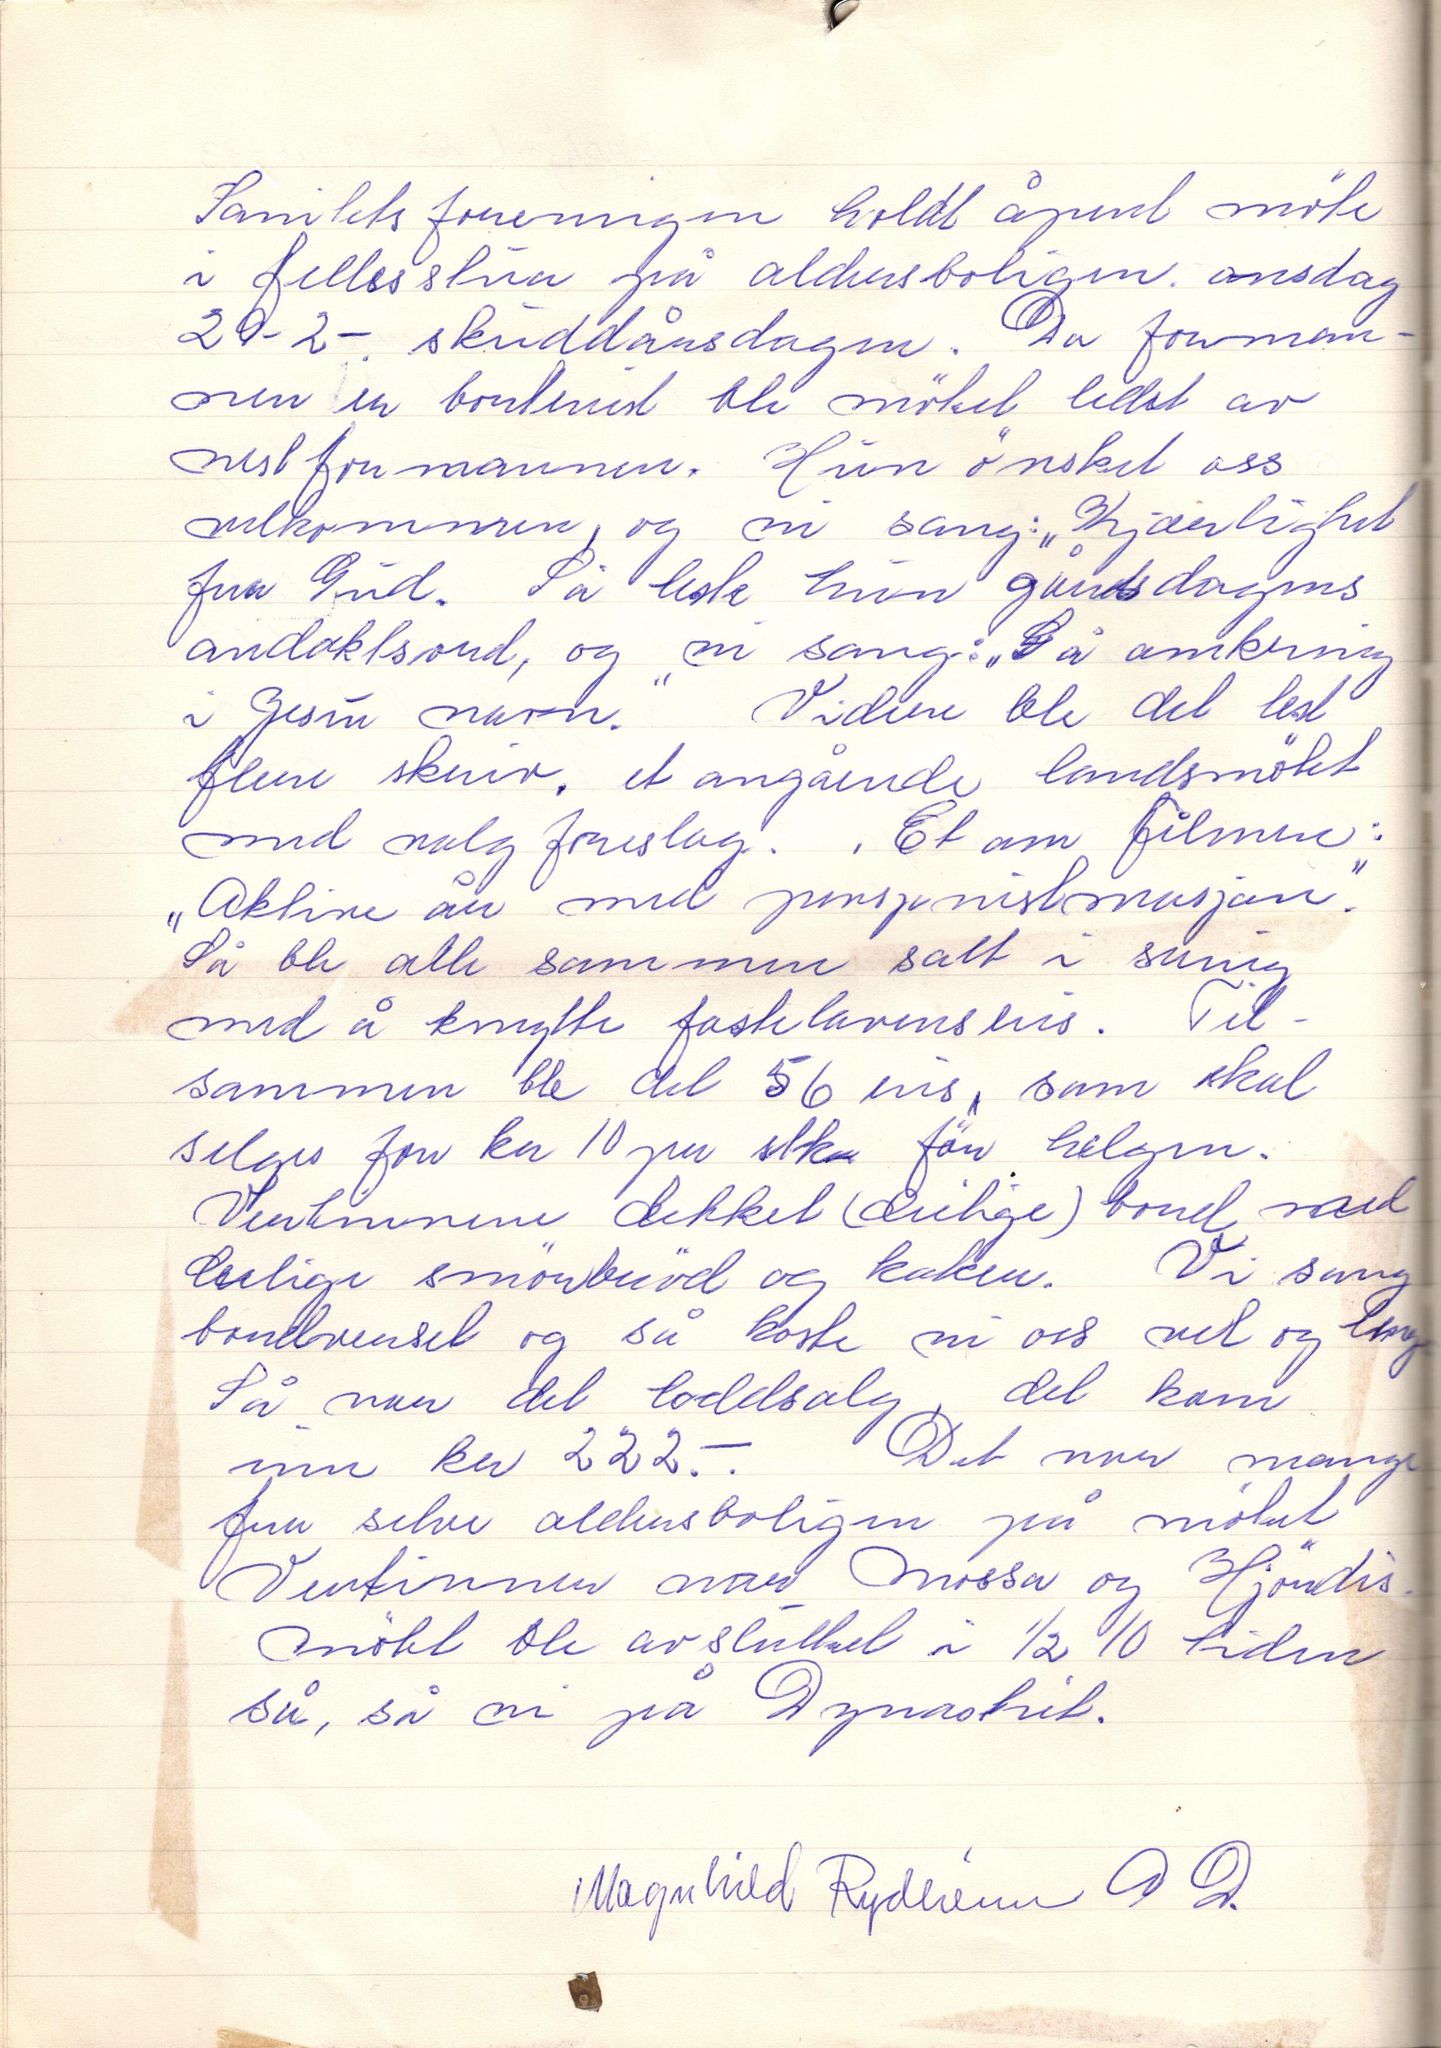 Sanitetsforeningen holdt åpent möte
i fellesstua på aldersboligen. onsdag
29-2-. skuddårsdagen. Da forman-
nen er bortreist ble mötet ledet av
nestformannen. Hun önsket oss
velkommen, og vi sang: „Kjærlighet
fra Gud. Så leste hun gårdsdagens
andaktsord, og vi sang: „Så omkring
i Jesu navn." Videre ble det lest
flere skriv. et angående landsmötet
med valg foreslag. . Et om filmen:
„Aktive år med pensjonistmosjon".
Så ble alle sammen satt i sving
med å knytte fastelavensris. Til-
sammen ble det 56 ris, som skal
selges for kr 10 per stk för helgen.
Vertinnene dekket (deilige) bord med
deilige smörbröd og kaker. Vi sang
bordverset og så koste vi oss vel og lenge
Så var det loddsalg, det kom
inn kr 222.-. Det var mange
fra selve aldersboligen på mötet
Vertinner var Mossa og Hjördis.
Mötet ble avsluttet i 1/2 10 tiden
så, så vi på Dynastiet.
Magnhild